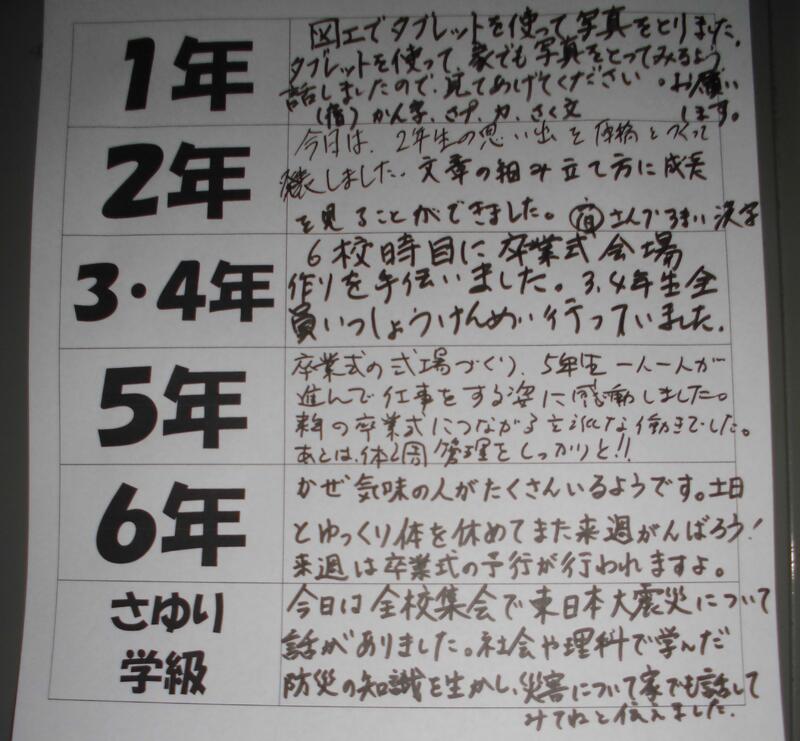 1年
図工でタブレットを使って写真をとりました。
タブレットを使って、家でも写真をとってみるよう
話しましたので、見てあげてください。お願い
します。
(宿)かん字、さプ、力、さく文
2年
今日は、2年生の思い出を原稿をつくって
発表しました。文章の組み立て方に成長
を見ることができました。宿さんプ ろまい 漢字
3・4年
6校時目に卒業式会場
作りを手伝いました。3、4年生全
員いっしょうけんめい行っていました。
5年
卒業式の式場づくり、5年生一人一人が
進んで仕事をする姿に感動しました。
の卒業式につながる立派な働きでした。
あとは、体調管理をしっかりと!!
6年
かぜ気味の人がたくさんいるようです。土日
とゆっくり体を休めてまた来週がんばろう!
来週は卒業式の予行が行われますよ。
さゆり
学級
今日は全校集会で東日本大震災について
話がありました。社会や理科で学んだ
防災の知識を生かし、災害について家でも話して
みてねと伝えました。